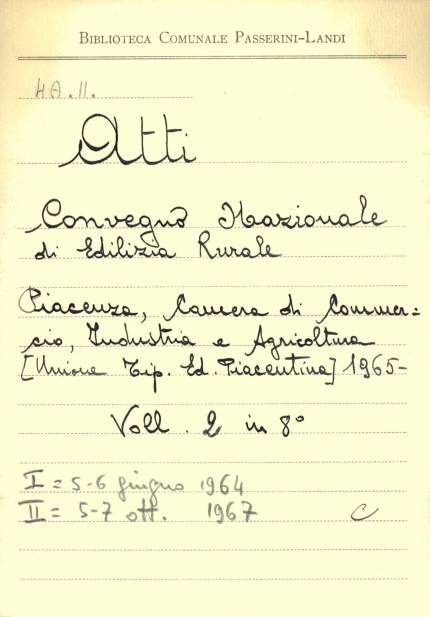 BIBLIOTECA COMUNALE PASSERINI-LANDI
4A.11.
Atti
Convegno Nazionale
di Edilizia Rurale
Piacenza, Camera di Commer=
cio, Industria e Agricoltura
[Unione Tip. Ed. Piacentina] 1965-
Voll. 2 in 8°
I = 5-6 giugno 1964
II = 5-7 ott. 1967 C